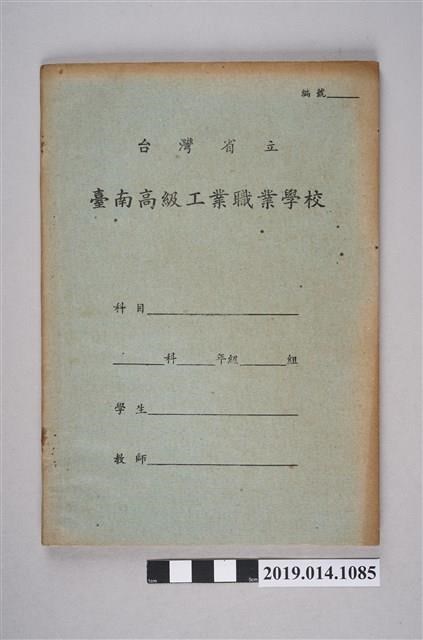 編號
台灣省立
臺南高級工業職業學校
科目
科 年級 組
學生
教師
1cm 5cm
2019.014.1085